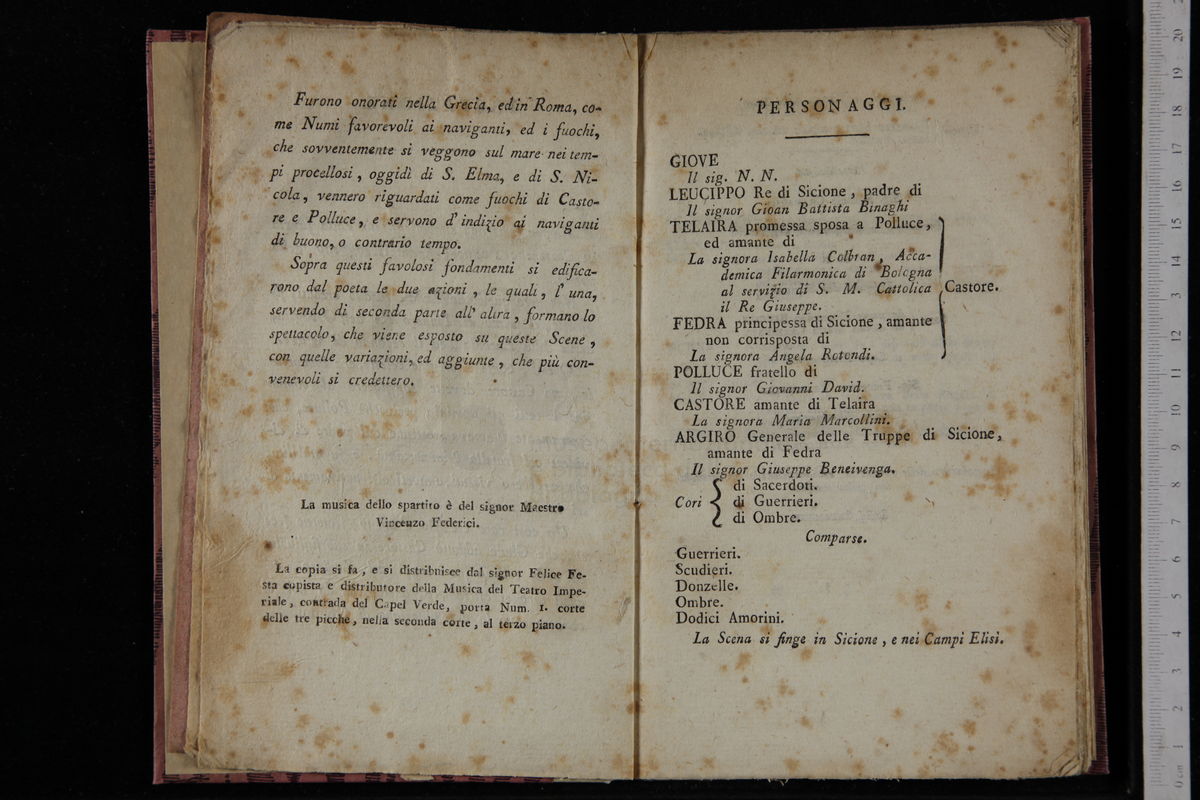 Furono onorati nella Grecia, ed in Roma, co-
me Numi favorevoli ai naviganti, ed i fuochi,
che sovventemente si veggono sul mare nei tem-
pi procellosi, oggidì di S. Elma, e di S. Ni-
cola, vennero riguardati come fuochi di Casto-
re e Polluce, e servono d' indizio ai naviganti
di buono, o contrario tempo.
Sopra questi favolosi fondamenti si edifica-
rono dal poeta le due azioni, le quali, l' una,
servendo di seconda parte all' altra, formano lo
spettacolo, che viene esposto su queste Scene,
con quelle variazioni, ed aggiunte, che più con-
venevoli si credettero.
La musica dello spartito è del signor Maestro
Vincenzo Federici.
La copia si fa, e si distribuisce dal signor Felice Fe-
sta copista e distributore della Musica del Teatro Impe-
riale, contrada del Capel Verde, porta Num. 1. corte
delle tre picche, nella seconda corte, al terzo piano.
PERSONAGGI.
GIOVE
Il sig. N. N.
LEUCIPPO Re di Sicione, padre di
Il signor Gioan Battista Binaghi
TELAIRA promessa sposa a Polluce,
ed amante di
La signora Isabella Colbran, Acca-
demica Filarmonica di Bologna
al servizio di S. M. Cattolica
il Re Giuseppe.
FEDRA principessa di Sicione, amante
non corrisposta di
La signora Angela Rotondi.
Castore.
POLLUCE fratello di
Il signor Giovanni David.
CASTORE amante di Telaira
La signora Maria Marcollini.
ARGIRO Generale delle Truppe di Sicione,
amante di Fedra
Il signor Giuseppe Beneivenga.
Cori { di Sacerdoti.
di Guerrieri.
di Ombre.
Comparse.
Guerrieri.
Scudieri.
Donzelle.
Ombre.
Dodici Amorini.
La Scena si finge in Sicione, e nei Campi Elisi.
0 cm 1 2 3 4 5 6 7 8 9 10 11 12 13 14 15 16 17 18 19 20